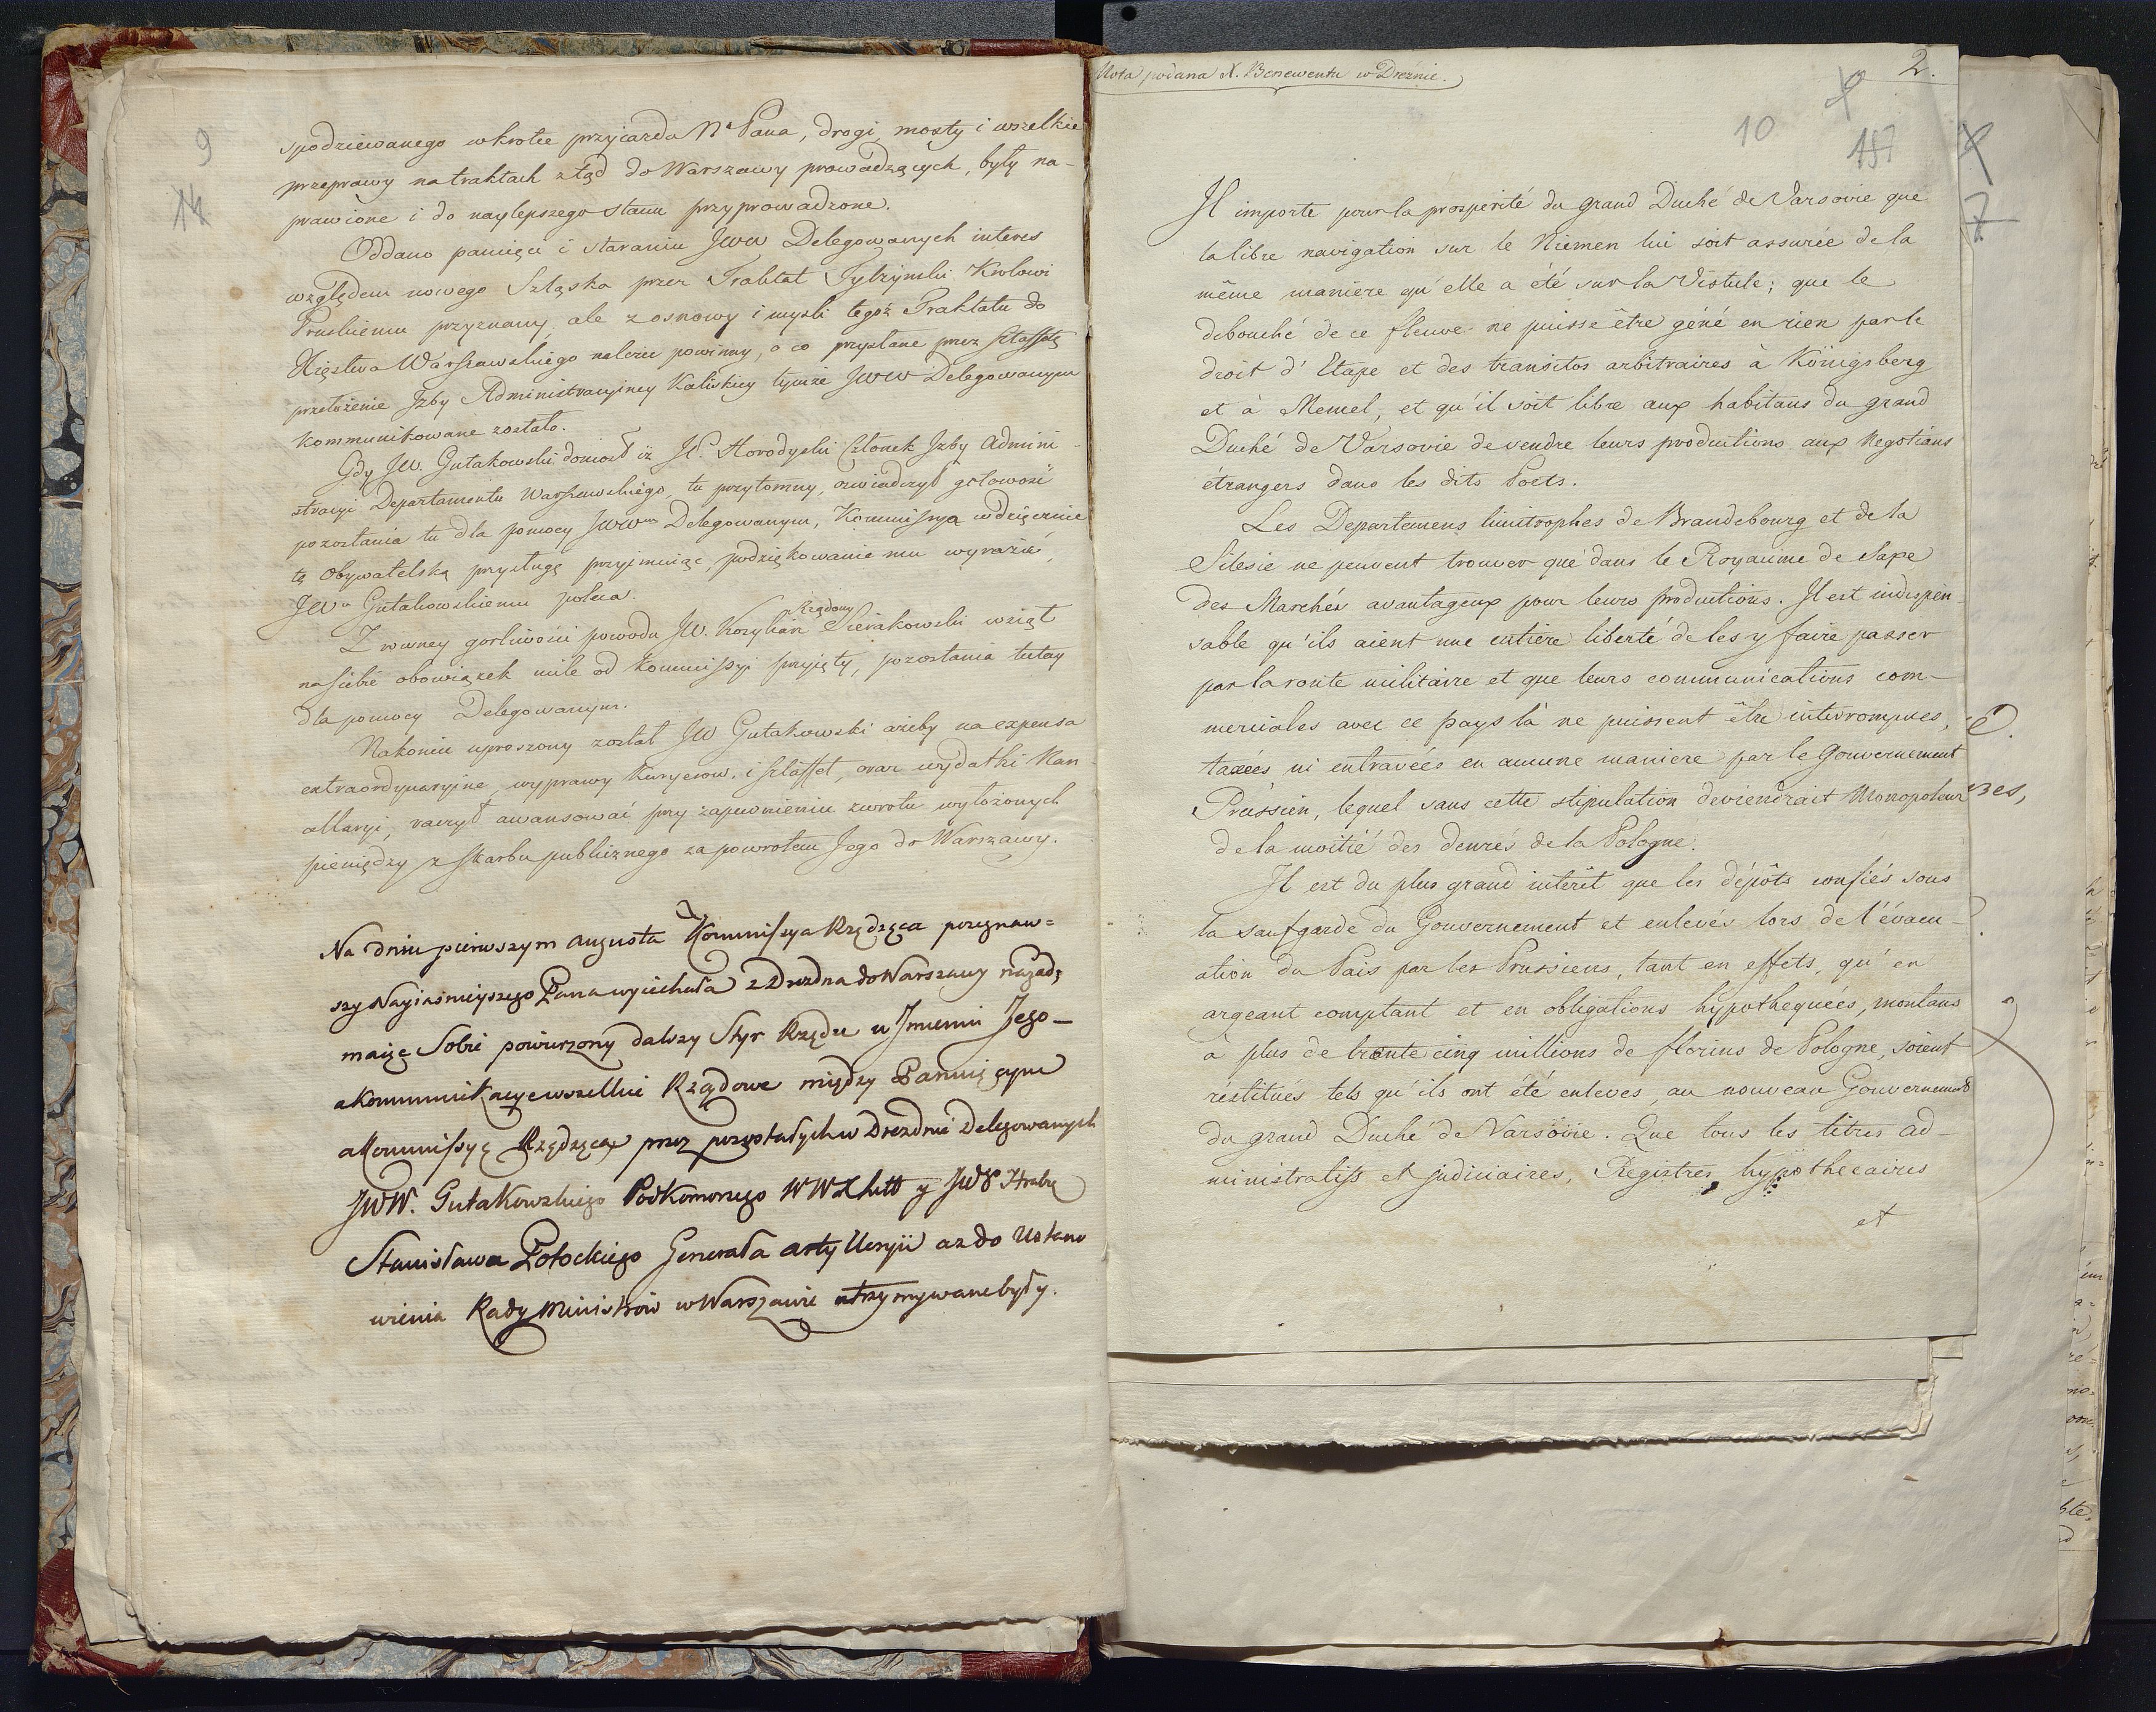 9
14
spodziewanego wkrotce przyiazdu Nº Pana, drogi, mosty i wszelkie
przeprawy na traktach ztąd do Warszawy prowadzących, były na-
prawione i do naylepszego stanu przyprowadzone.
Oddano pamięci i staraniu JWW Delegowanych interes
względem nowego Szląska przez Traktat Tylżynski Krolowi
Pruskiemu przyznany, ale z osnowy i mysli tegoż Traktatu do
Xięstwa Warszawskiego należeć powinny, o co przysłane przez sztafetę
przełożenie Izby Administracyiney Kaliskiey tymże JWW Delegowanym
kommunikowane zostało.
Gdy JW. Gutakowski doniosł iż JP. Horodyski Członek Izby Admini-
stracyi Departamentu Warszawskiego, tu przytomny, oswiadczył gotowość
pozostania tu dla pomocy JWWm Delegowanym, Kommissya wdzięcznie
tę Obywatelską przysługę przyimuiąc, podziękowanie mu wyrazić,
JWu Gutakowskiemu poleca.
Z rowney gorliwości powodu JW. Kozylian Rządowy Sierakowski wziął
na siebie obowiązek mile od Kommissyi przyięty, pozostania tutay
dla pomocy Delegowanym.
Nakoniec uproszony został JW Gutakowski ażeby na expensa
extraordynaryine, wyprawy Kuryerow i sztaffet, oraz wydatki Kan-
cellaryi, raczył awansować przy zapewnieniu zwrotu wyłożonych
pieniędzy z skarbu publicznego za powrotem Jego do Warszawy.
Na dniu pierwszym Augusta Kommissya Rządząca pożegnaw=
szy Nayiaśnieyszego Pana wyiechała z Drezdna do Warszawy
maiąc Sobie powierzony dalszy Styr Rządu w Imieniu Jego-
a Kommunikacye wszelkie Rządowe między Panuiącym
a Kommissyą Rządzącą przez pozostałych w Drezdnie Delegowanych
JWW. Gutakowskiego Podkomorzego WWX Litt y JW Hrabię
Stanisława Potockiego Generała Artylleryii aż do Ustano
wienia Rady Ministrow w Warszawie utrzymywane były.
Nota podana X. Benewentu w Dreznie.
2.
10
9
187
7
Il importe pour la prospérité du grand Duché de Varsovie que
la libre navigation sur le Niemen lui soit assurée de la
même maniere qu'elle a été sur la Vistule; que le
debouché de ce fleuve ne puisse être géné en rien par le
droit d'Etape et des transitos arbitraires à Königsberg
et à Memel, et qu'il soit libre aux habitans du grand
Duché de Varsovie de vendre leurs productions aux Negotians
étrangers dans les dits Ports.
Les Departemens limitrophes de Brandebourg et de la
Silesie ne peuvent trouver que dans le Royaume de Saxe
des Marchés avantageux pour leurs productions. Il est indispen-
sable qu'ils aient une entière liberté de les y faire passer
par la route militaire et que leurs communications com-
merciales avec ce pays là ne puissent être interrompues,
taxées ni entravées en aucune maniere par le Gouvernement
Prussien, lequel sans cette stipulation deviendrait Monopoleur
de la moitié des denrés de la Pologne.
Il est du plus grand intérêt que les dépôts confiés sous
la saufgarde du Gouvernement et enlevés lors de l'évacu-
ation du Pais par les Prussiens, tant en effets, qu'en
argeant comptant et en obligations hypothequées, montans
à plus de trente cinq millions de florins de Pologne, soient
réstitués tels qu'ils ont été enleves, au nouveau Gouvernement
du grand Duché de Varsovie. Que tous les titres ad-
ministratifs et judiciaires, Registres hypothecaires
et